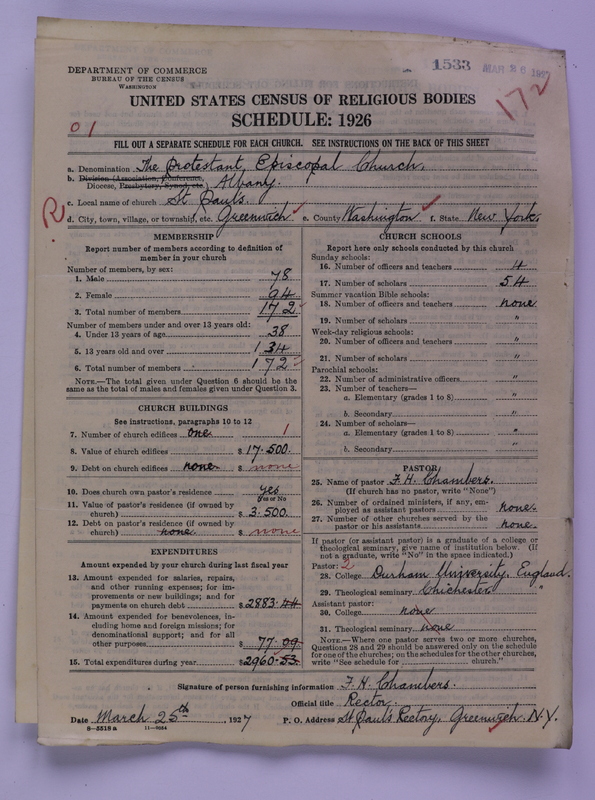 1533 MAR 26 1927
172
DEPARTMENT OF COMMERCE
BUREAU OF THE CENSUS
WASHINGTON
UNITED STATES CENSUS OF RELIGIOUS BODIES
SCHEDULE: 1926
01
FILL OUT A SEPARATE SCHEDULE FOR EACH CHURCH. SEE INSTRUCTIONS ON THE BACK OF THIS SHEET
a. Denomination The Protestant Episcopal Church.
b. Division (Association, Conference,
Diocese, Presbytery, Synod, etc. Albany.
c. Local name of church St Pauls.
R
d. City, town, village, or township, etc. Greenwich e. County Washington f. State New York.
MEMBERSHIP
Report number of members according to definition of
member in your church
Number of members, by sex:
1. Male 78
2. Female 94
3. Total number of members 172
Number of members under and over 13 years old:
4. Under 13 years of age 38
5. 13 years old and over 134
6. Total number of members 172
NOTE.—The total given under Question 6 should be the
same as the total of males and females given under Question 3.
CHURCH BUILDINGS
See instructions, paragraphs 10 to 12
7. Number of church edifices one 1
8. Value of church edifices $ 17.500.
9. Debt on church edifices none $ none
10. Does church own pastor's residence yes
Yes or No
11. Value of pastor's residence (if owned by
church) $ 3.500.
12. Debt on pastor's residence (if owned by
church) none $ none
EXPENDITURES
Amount expended by your church during last fiscal year
13. Amount expended for salaries, repairs,
and other running expenses; for im-
provements or new buildings; and for
payments on church debt $ 2883.44
14. Amount expended for benevolences, in-
cluding home and foreign missions; for
denominational support; and for all
other purposes $ 77.09
15. Total expenditures during year $ 2960.53
CHURCH SCHOOLS
Report here only schools conducted by this church
Sunday schools:
16. Number of officers and teachers 4
17. Number of scholars 54
Summer vacation Bible schools:
18. Number of officers and teachers none
19. Number of scholars "
Week-day religious schools:
20. Number of officers and teachers "
21. Number of scholars "
Parochial schools:
22. Number of administrative officers "
23. Number of teachers—
a. Elementary (grades 1 to 8) "
b. Secondary "
24. Number of scholars—
a. Elementary (grades 1 to 8) "
b. Secondary "
PASTOR
25. Name of pastor F. H. Chambers.
(If church has no pastor, write "None")
26. Number of ordained ministers, if any, em-
ployed as assistant pastors none.
27. Number of other churches served by the
pastor or his assistants none.
If pastor (or assistant pastor) is a graduate of a college or
theological seminary, give name of institution below. (If
not a graduate, write "No" in the space indicated.)
Pastor: 2
28. College Durham University, England.
29. Theological seminary Chichester. "
Assistant pastor:
30. College none
31. Theological seminary none
NOTE.—Where one pastor serves two or more churches,
Questions 28 and 29 should be answered only on the schedule
for one of the churches; on the schedules for the other churches,
write "See schedule for church."
Signature of person furnishing information F. H. Chambers.
Official title Rector.
Date March 25th, 1927 P. O. Address St Paul's Rectory, Greenwich. N.Y.
8—5518 a 11—9084